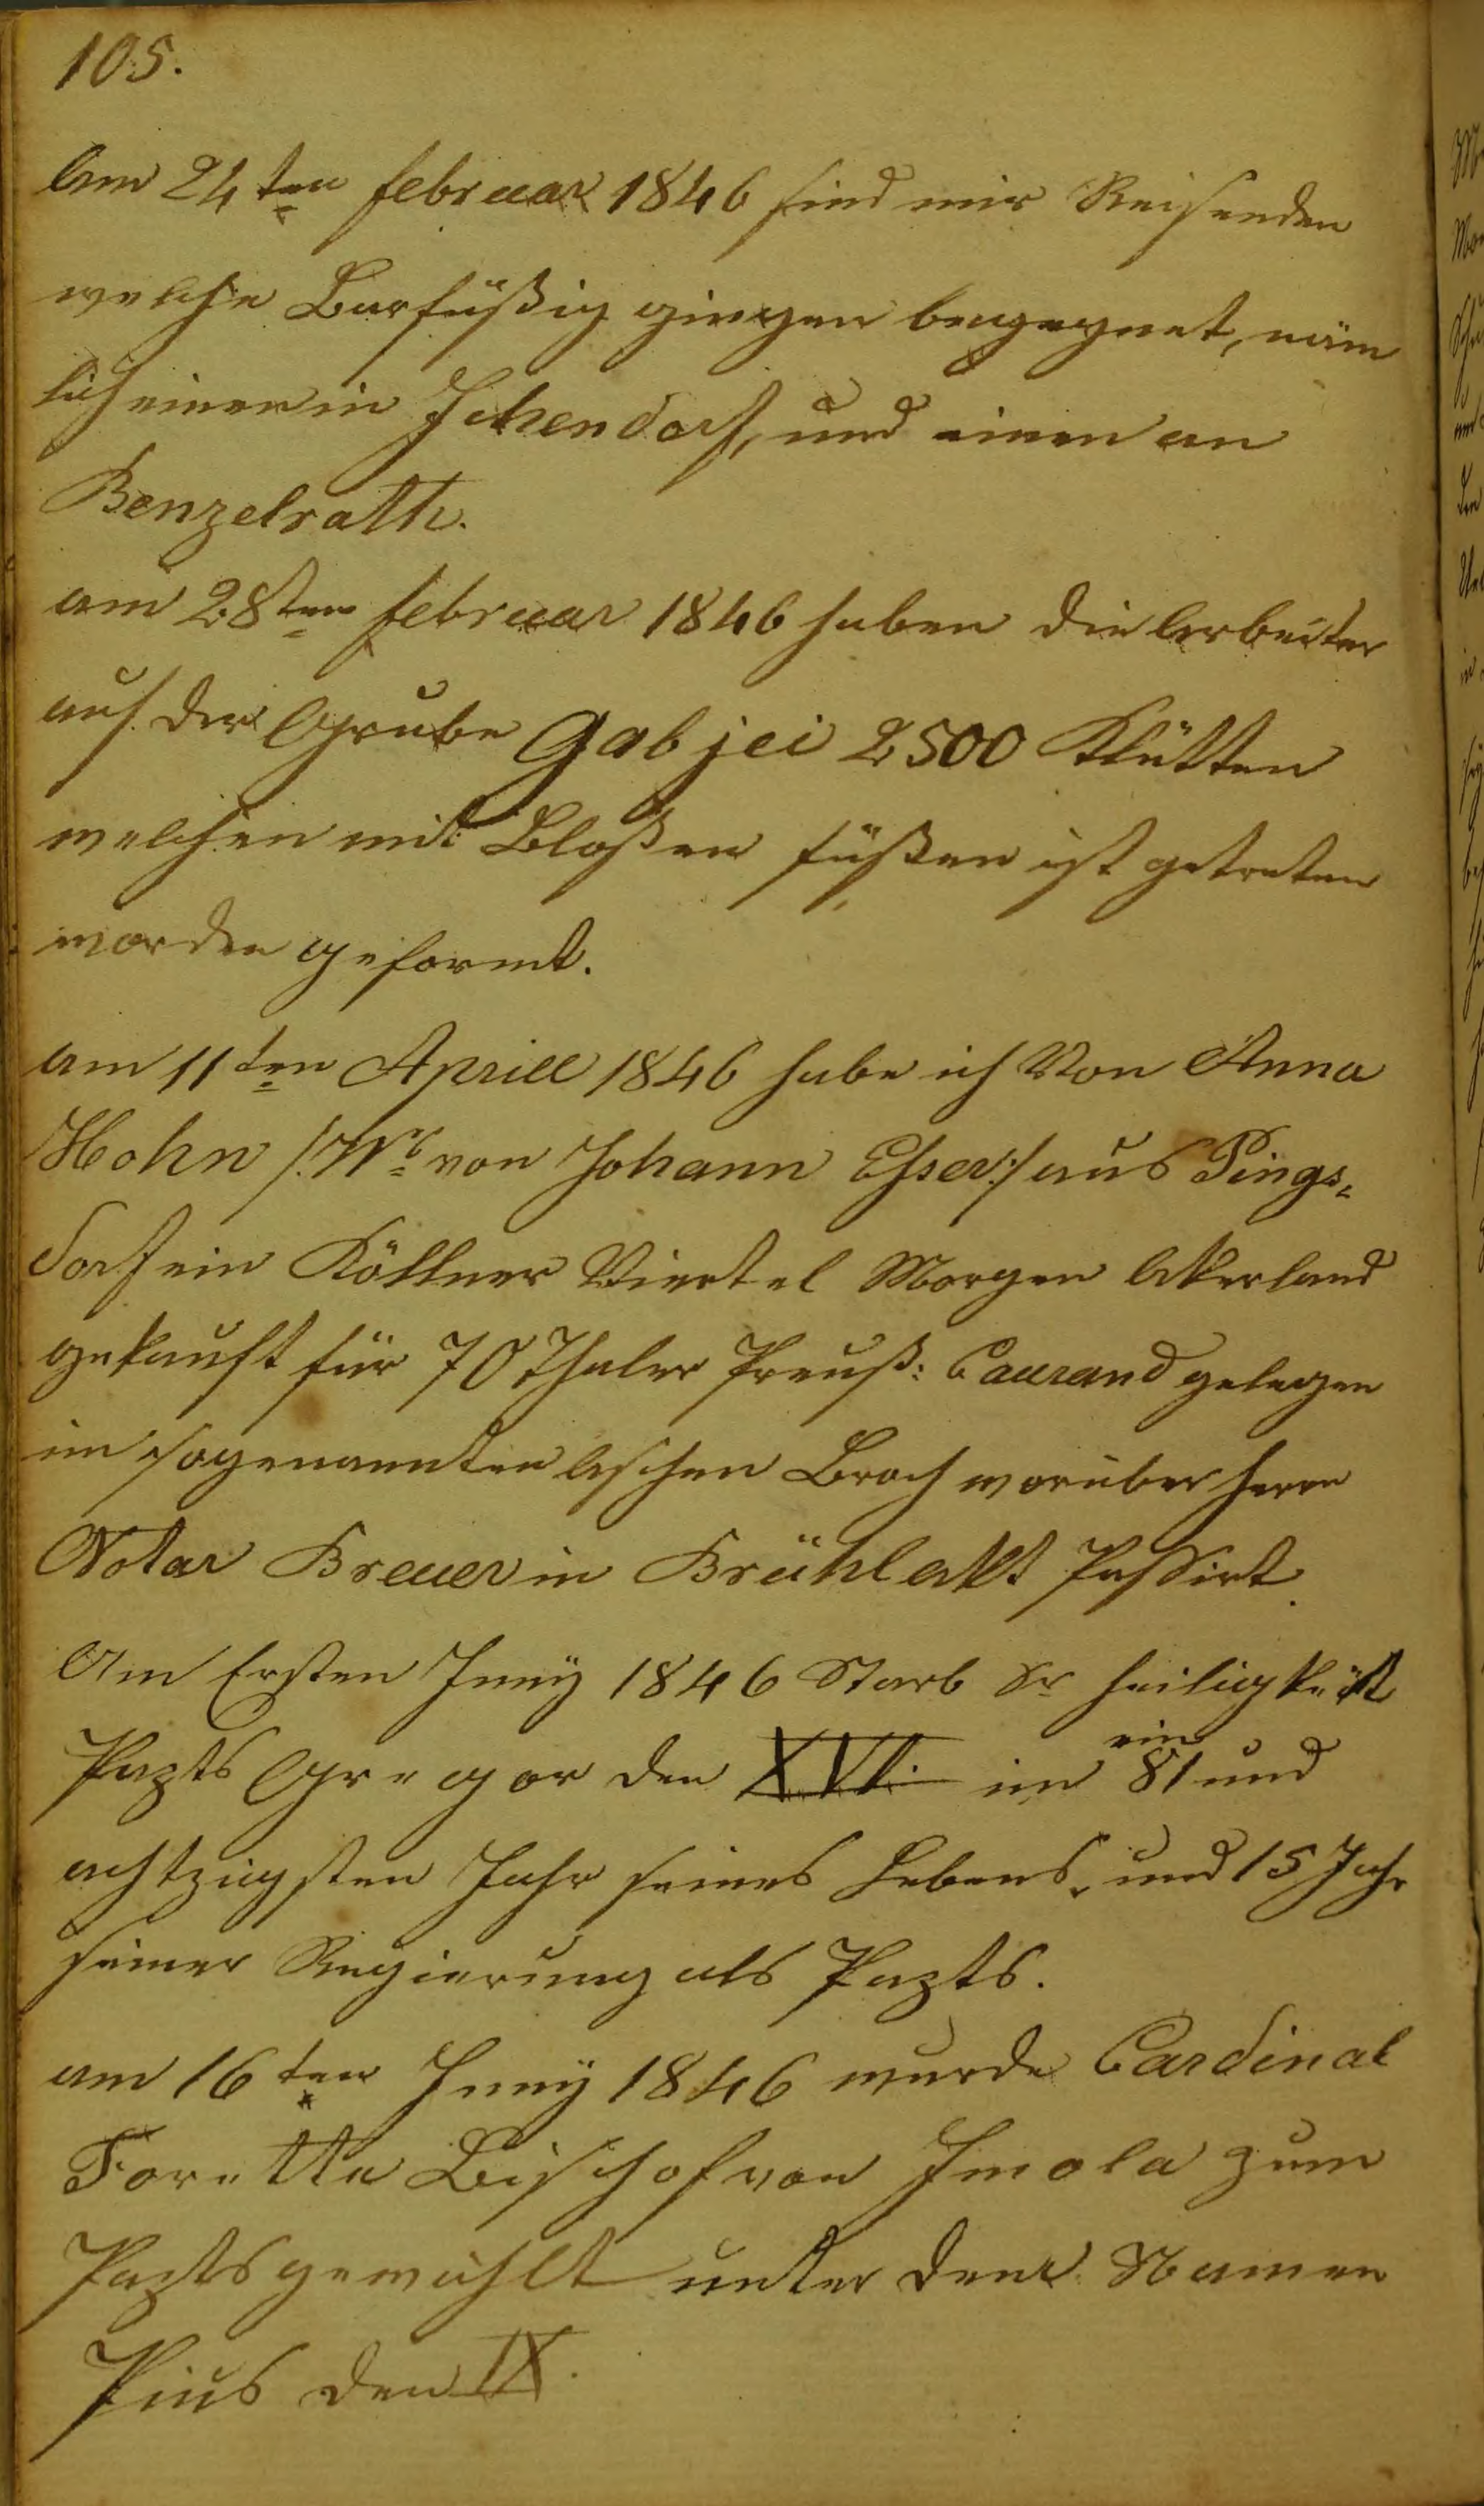 105.
Am 24ten februar 1846 sind mir Reisenden
welche Barfüßig gingen begegnet, näm
lich einer in Ichendorf, und einen an
Benzelrath.
am 28ten februar 1846 haben die Arbeiter
auf der Grube Gabjei 2500 Klütten
welchen mit Bloßen füßen ist getreten
worden geformt.
am 11ten Aprill 1846 habe ich Von Anna
Hohn /:Wb von Johann Esser:/ aus Pings=
dorf ein Köllner Viertel Morgen Akerland
gekauft für 70 Thaler Preuß: Caurand gelegen
im sogenannten Aschen Broch worüber herrn
Notar Breuer in Brühl akt Passirt.
Am Ersten Juny 1846 Starb Sr heiligkeit
Pazts Gregor den XVI. im 81 und
ein
achtzigsten Jahr seines Lebens, und 15 Jahr
seiner Regierung als Pazts.
am 16ten Juny 1846 wurde Cardinal
Forette Bischof von Imola zum
Pazts gewählt unter dem Namen
Pius den IX.